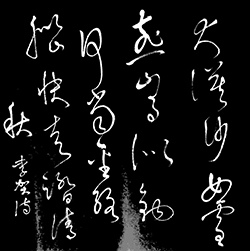 大漠沙如雪
燕山月似钩
何当金络
脑快走踏清
秋
李贺诗